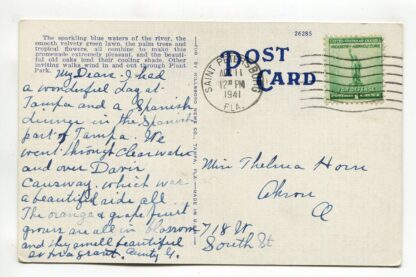 The sparkling blue waters of the river, the
smooth velvety green lawn, the palm trees and
tropical flowers, all combine to make this
promenade extremely pleasant, and the beauti-
ful old oaks lend their cooling shade. Other
inviting walks wind in and out through Plant
Park.
My Dears. I had
a wonderful day at
Tampa and a Spanish
dinner in the Spanish
part of Tampa. We
went through Clearwater
and over Davis
Causway, which was
a beautiful ride all
The orange & grape fruit
groves are all in blossom
and they smell beautiful
so fragrant. Aunty G.
26285
POST
CARD
SAINT PETERSBURG
11
12 PM
1941
FLA.
INDUSTRY · AGRICULTURE
FOR DEFENSE
Miss Thelma Horn
Akron
O
718 W
South St